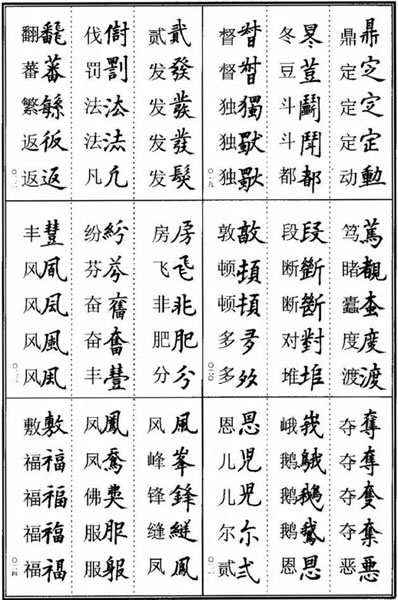 鼎鼎定㝎定㝎定定动動
冬豆荳斗鬭斗鬥都都
督督独獨独独
〇一九
笃篤睹覩蠹度度渡渡
段段断斷断斷对對堆
敦敦顿頓顿頓多多
〇二〇
夺奪夺奪夺夺恶惡
峨峩鹅鵞鹅鵝鹅恩恩
恩恩儿児儿児尔尒贰弍
〇二一
贰貳发發发發发發发髮
伐罚罰法法法凡凡
翻飜蕃蕃繁返仮返返
〇二二
房房飞飛非非肥肥分分
纷紛芬芬奋奮奋奮丰豐
丰豐风凬风凬风風风風
〇二三
风風峰峯锋鋒缝縫凤鳳
凤鳳凤佛服服服
敷敷福福福福福福福福
〇二四